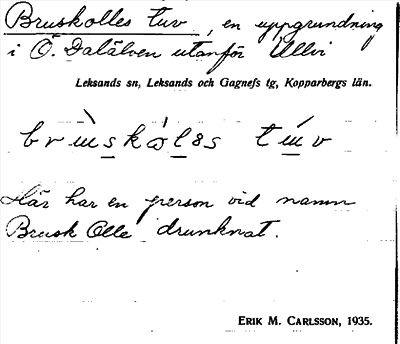 Bruskolles tuv, en uppgrundning
i Ö. Dalälven utanför Ullvi
Leksands sn, Leksands och Gagnefs tg, Kopparbergs län.
Här har en person vid namn
Brusk Olle drunknat.
ERIK M. CARLSSON, 1935.